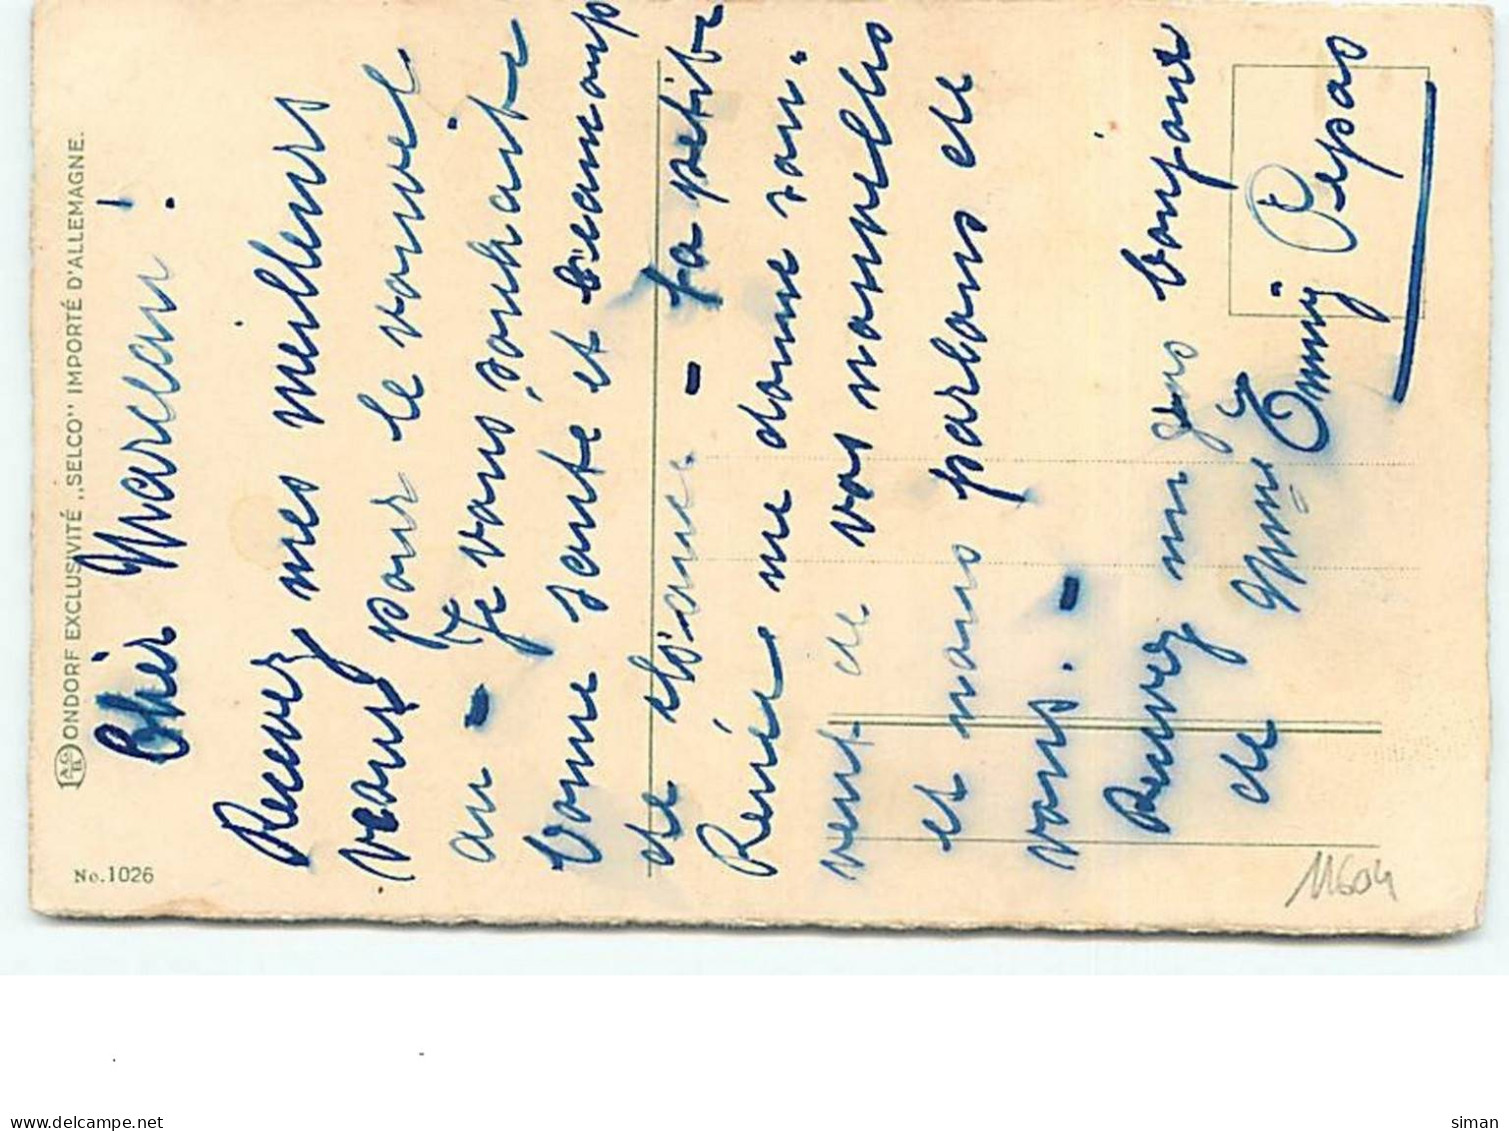 No. 1026
A.G.B. ONDORF EXCLUSIVITÉ „SELCO" IMPORTÉ D'ALLEMAGNE.
Cher Marcelau!
Recevez mes meilleurs
veaux pour le nouvel
an - Je vous souhaite
bonne sante et beaucoup
de
Renée me donne sou-
vent de vos nouvelles
et nous parlons de
vous. -
Recevez un gros bonjour
de Mme Emmy Pepas
11604
delcampe.net
siman